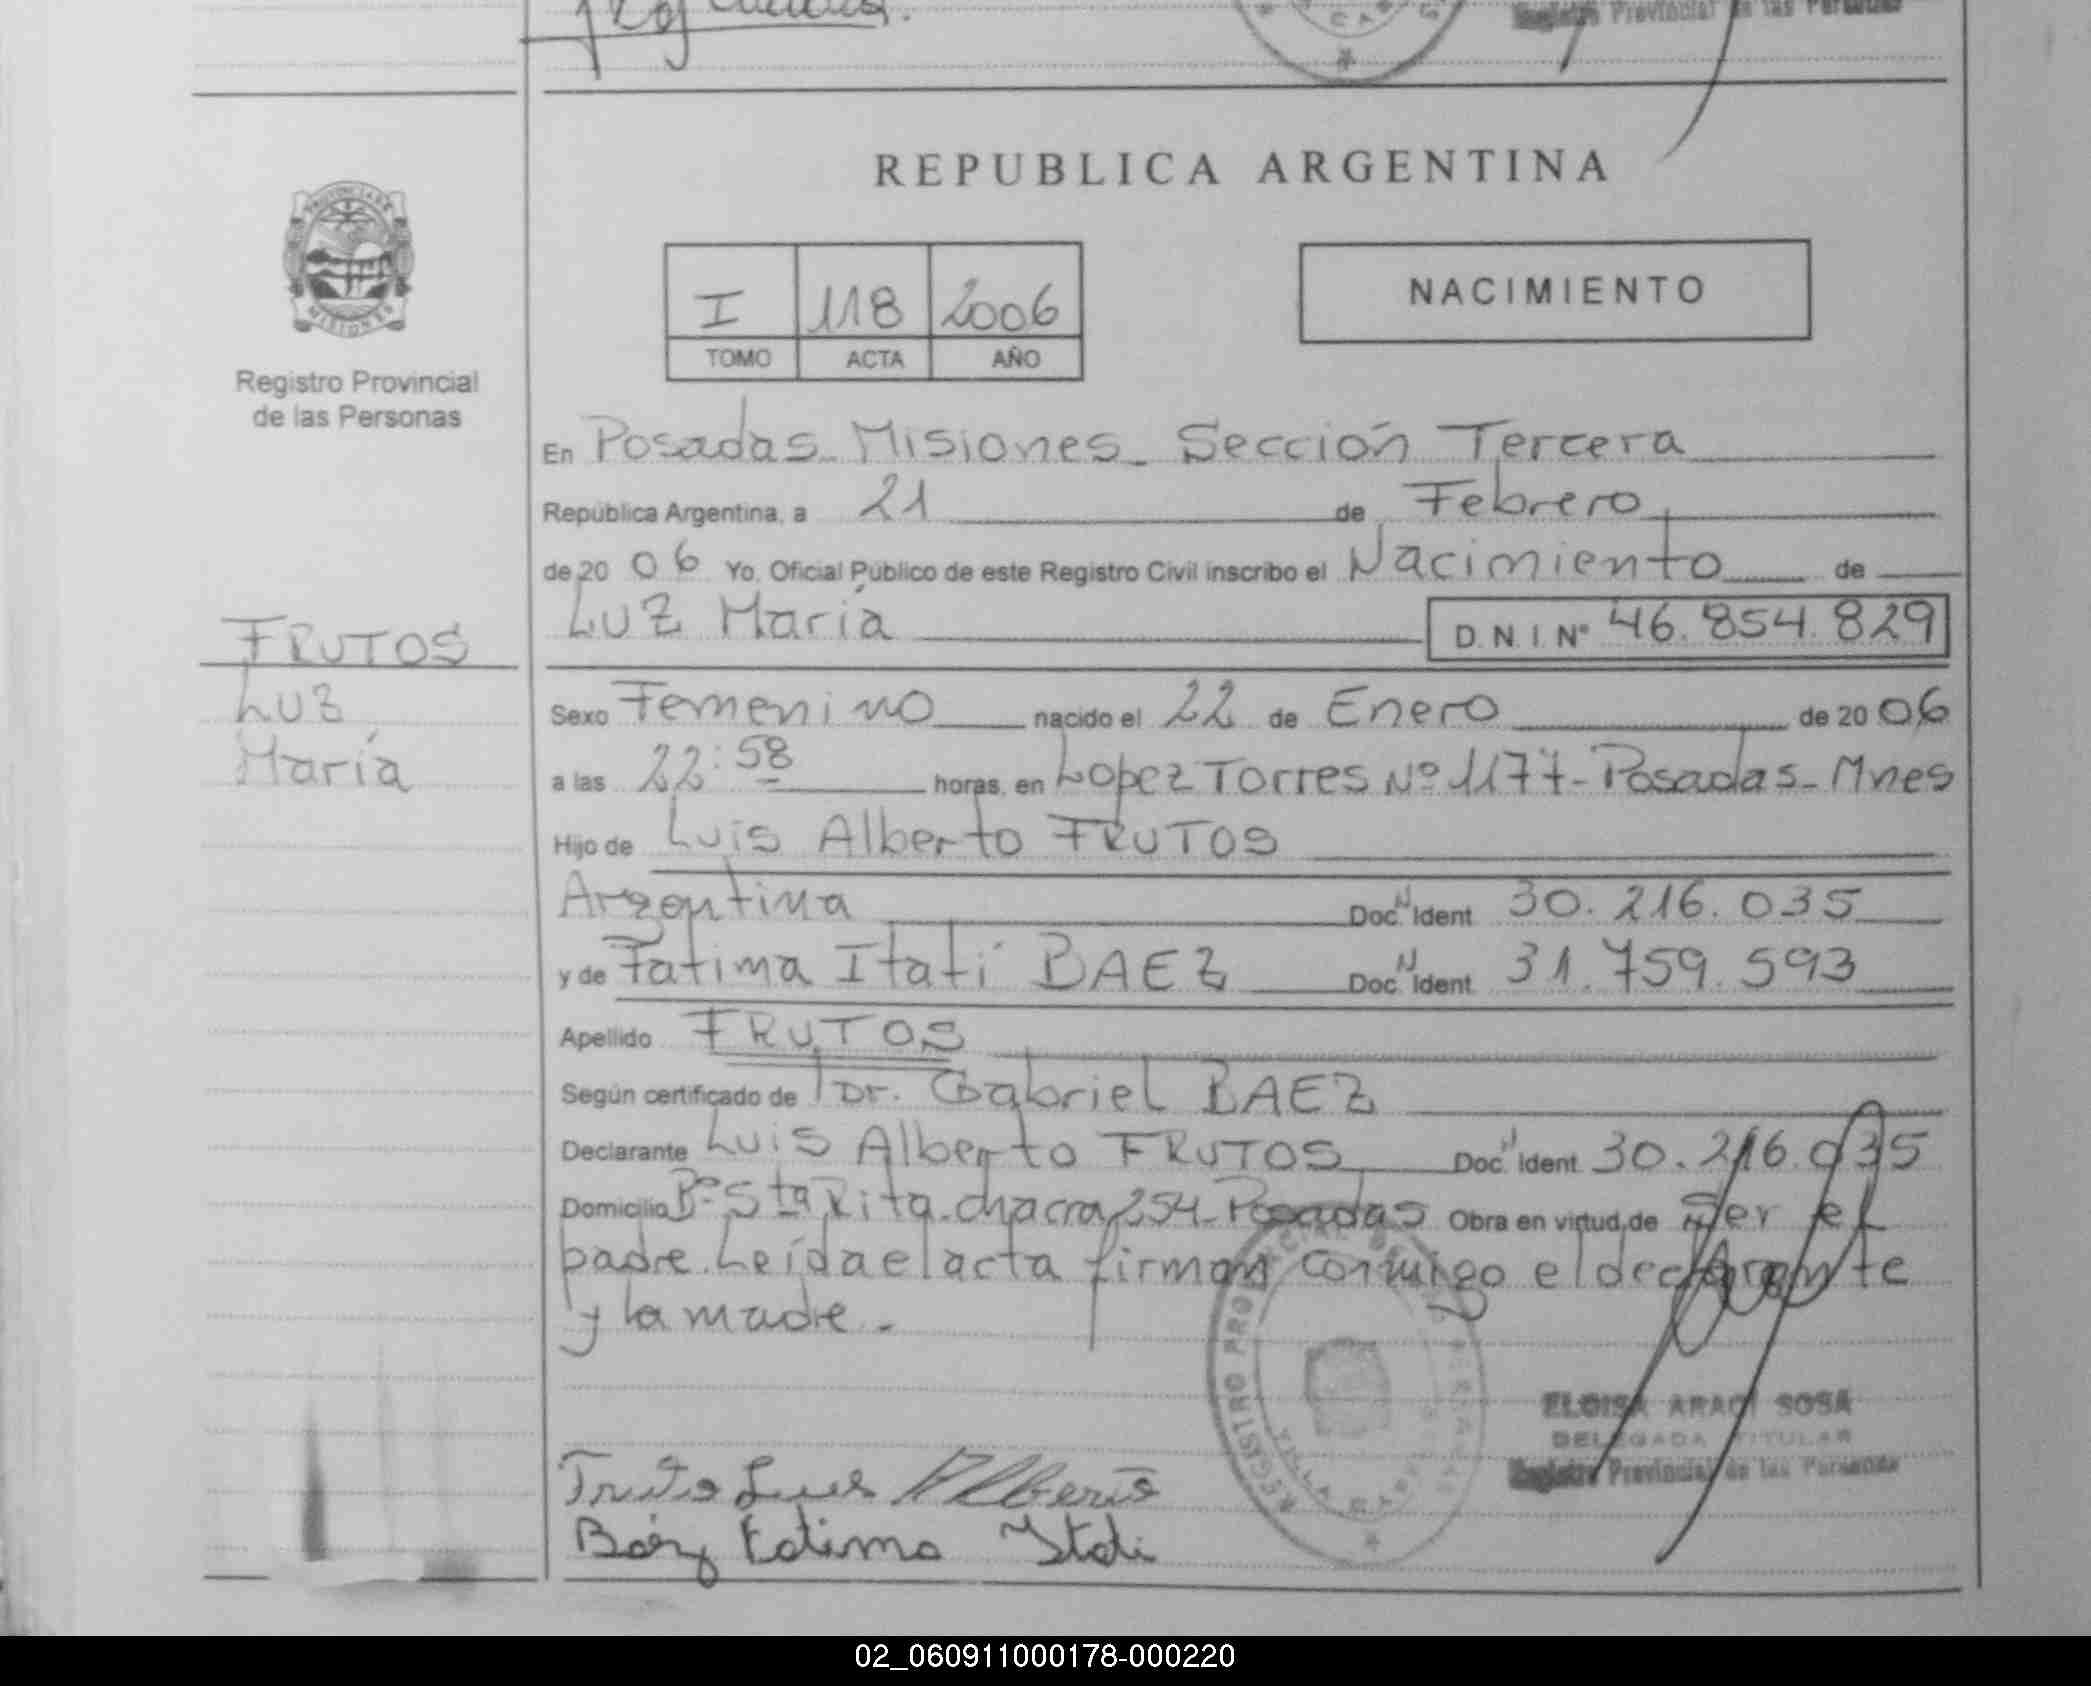 Registro Provincial de las Personas
REPUBLICA ARGENTINA
PROVINCIA DE
MISIONES
Registro Provincial
de las Personas
I 118 2006
TOMO ACTA AÑO
NACIMIENTO
En Posadas - Misiones - Sección Tercera
República Argentina, a 21 de Febrero
de 20 06 Yo, Oficial Público de este Registro Civil inscribo el Nacimiento de
Luz María D.N.I. Nº 46.854.829
FRUTOS
Luz
María
Sexo Femenino nacido el 22 de Enero de 20 06
a las 22:58 horas, en Lopez Torres Nº 1177 - Posadas - Mnes
Hijo de Luis Alberto FRUTOS
Argentina Doc. N Ident 30.216.035
y de Fatima Itatí BAEZ Doc. N Ident 31.759.593
Apellido FRUTOS
Según certificado de Dr. Gabriel BAEZ
Declarante Luis Alberto FRUTOS Doc. N Ident 30.216.035
Domicilio Bº Sta Rita - chacra 254 - Posadas Obra en virtud de Ser el
padre. Leída el acta firman conmigo el declarante
y la madre.-
REGISTRO PRO
ELOISA ARACI SOSA
DELEGADA TITULAR
Registro Provincial de las Personas
Fruto Luis Alberto
Báez Fatima Itati
02_060911000178-000220